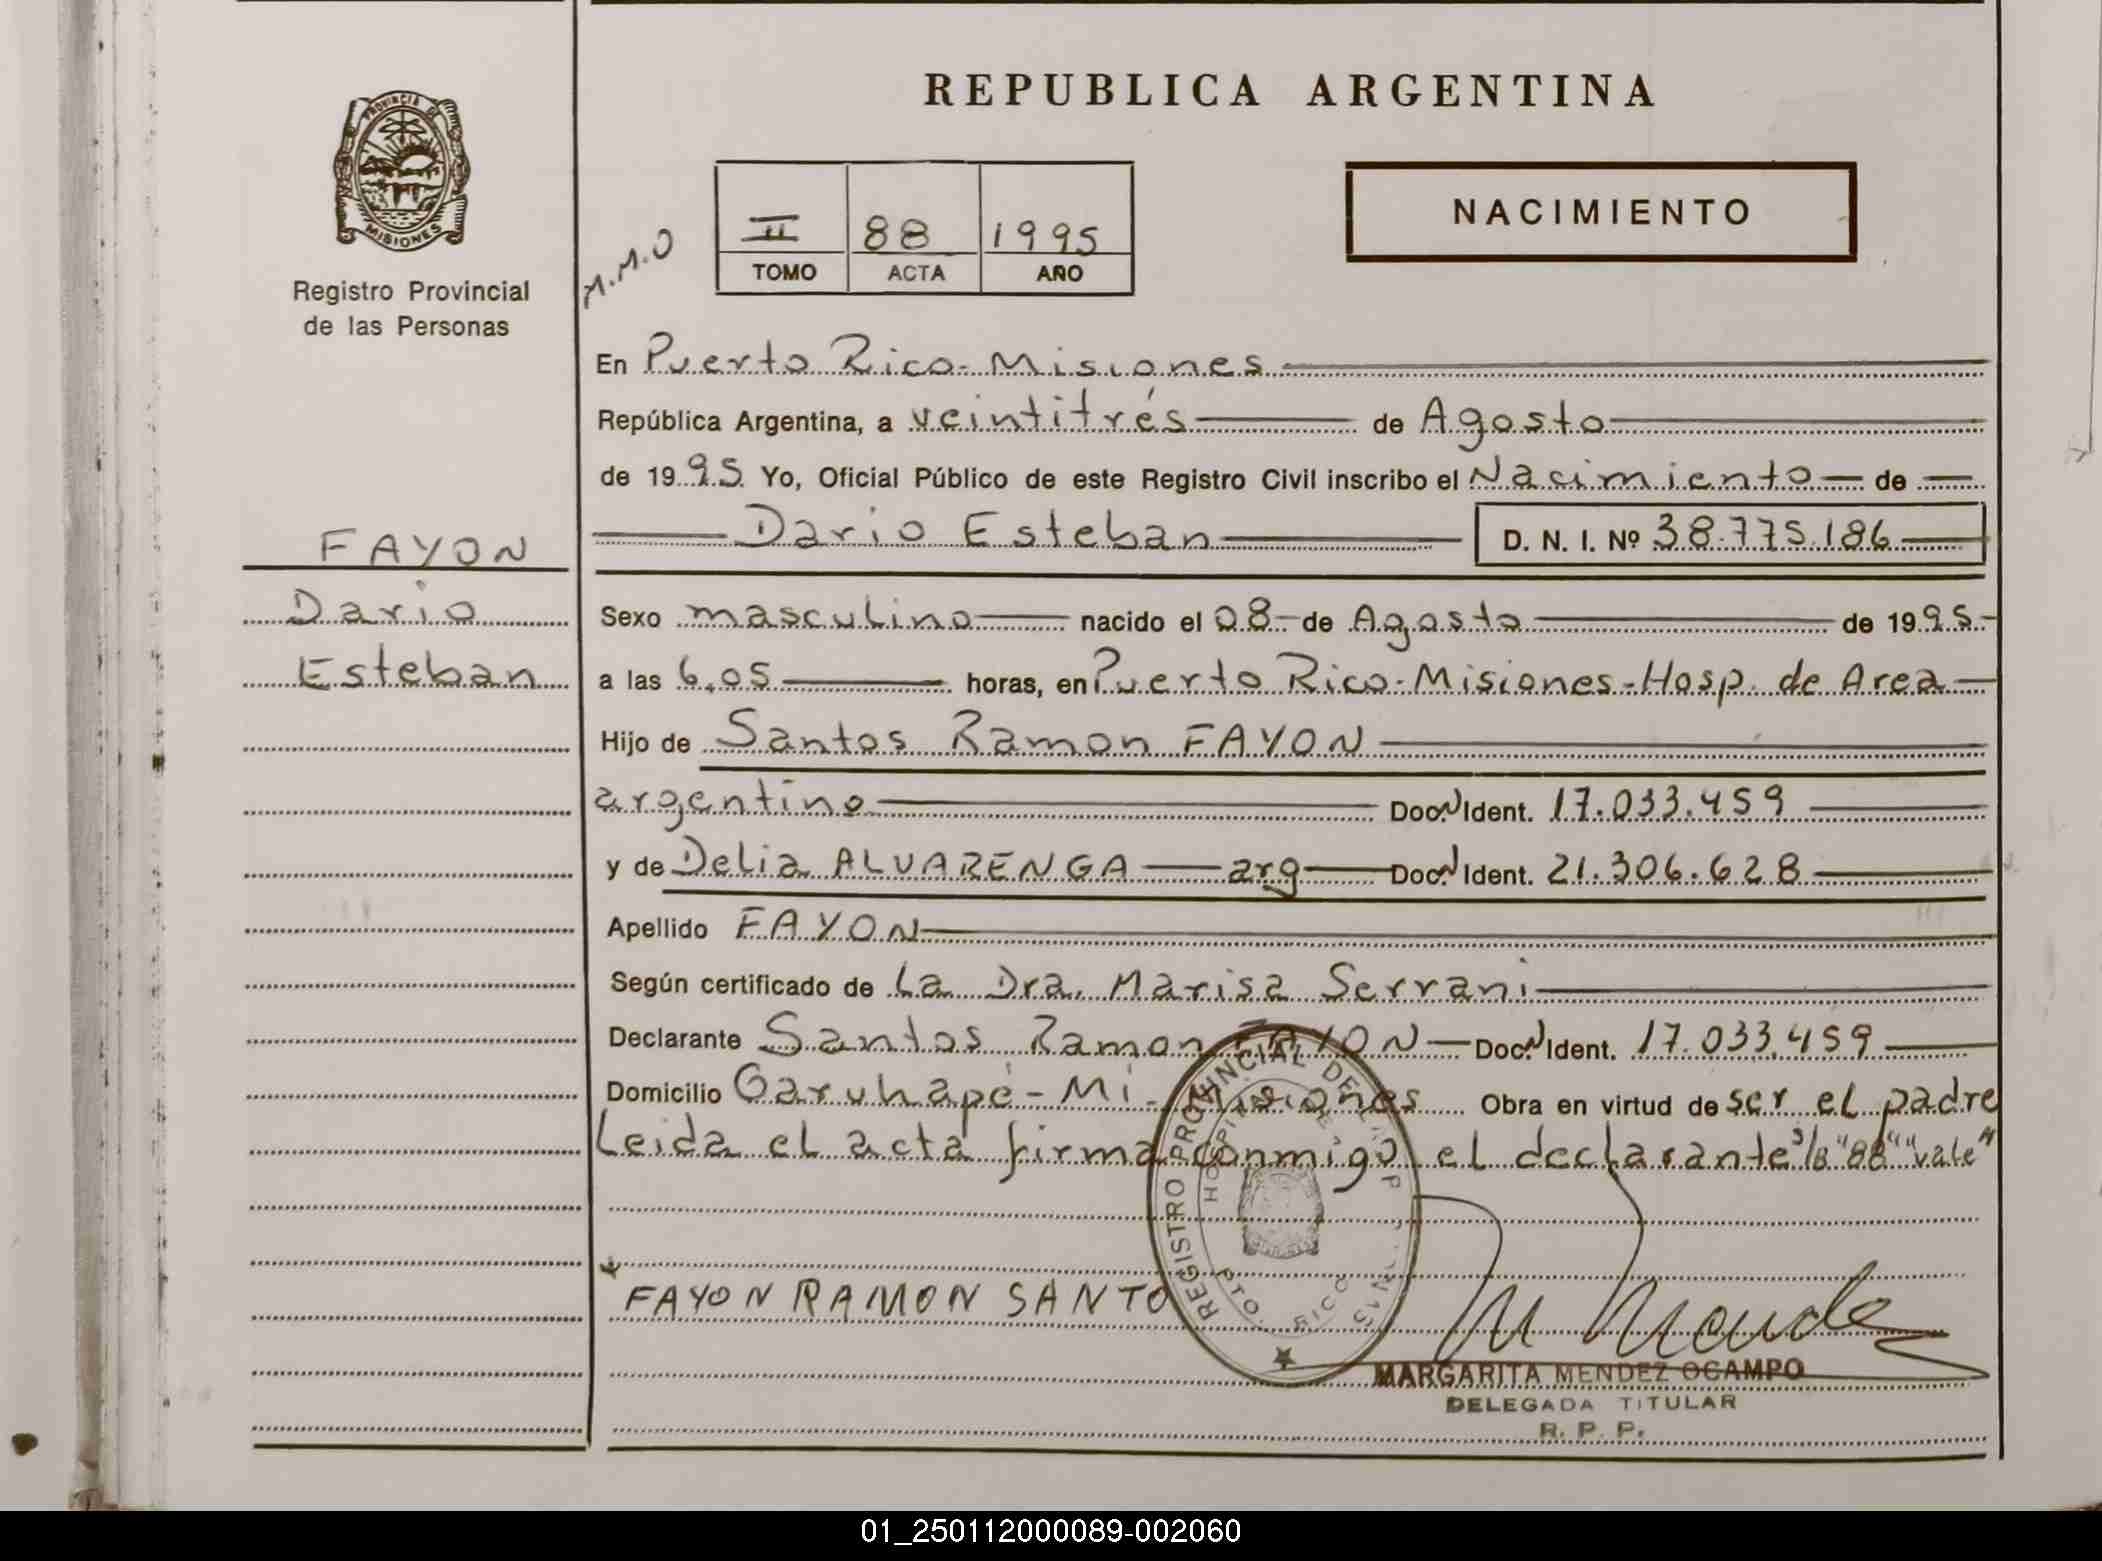 REPUBLICA ARGENTINA
PROVINCIA DE
MISIONES
Registro Provincial
de las Personas
M.M.O
II 88 1995
TOMO ACTA AÑO
NACIMIENTO
FAYON
Dario
Esteban
En Puerto Rico - Misiones
República Argentina, a veintitrés de Agosto
de 1995 Yo, Oficial Público de este Registro Civil inscribo el Nacimiento de
Dario Esteban D. N. I. Nº 38.775.186
Sexo masculino nacido el 08 de Agosto de 1995
a las 6,05 horas, en Puerto Rico - Misiones - Hosp. de Area
Hijo de Santos Ramon FAYON
argentino Doc. N Ident. 17.033.459
y de Delia ALVARENGA arg Doc. N Ident. 21.306.628
Apellido FAYON
Según certificado de la Dra. Marisa Serrani
Declarante Santos Ramon FAYON Doc. N Ident. 17.033.459
Domicilio Garuhapé - Mi - Misiones Obra en virtud de ser el padre
Leida el acta firma conmigo el declarante S/B "88" "vale"
FAYON RAMON SANTO
REGISTRO PROVINCIAL DE
PTO. RICO
M Mende
MARGARITA MENDEZ OCAMPO
DELEGADA TITULAR
R. P. P.
01_250112000089-002060